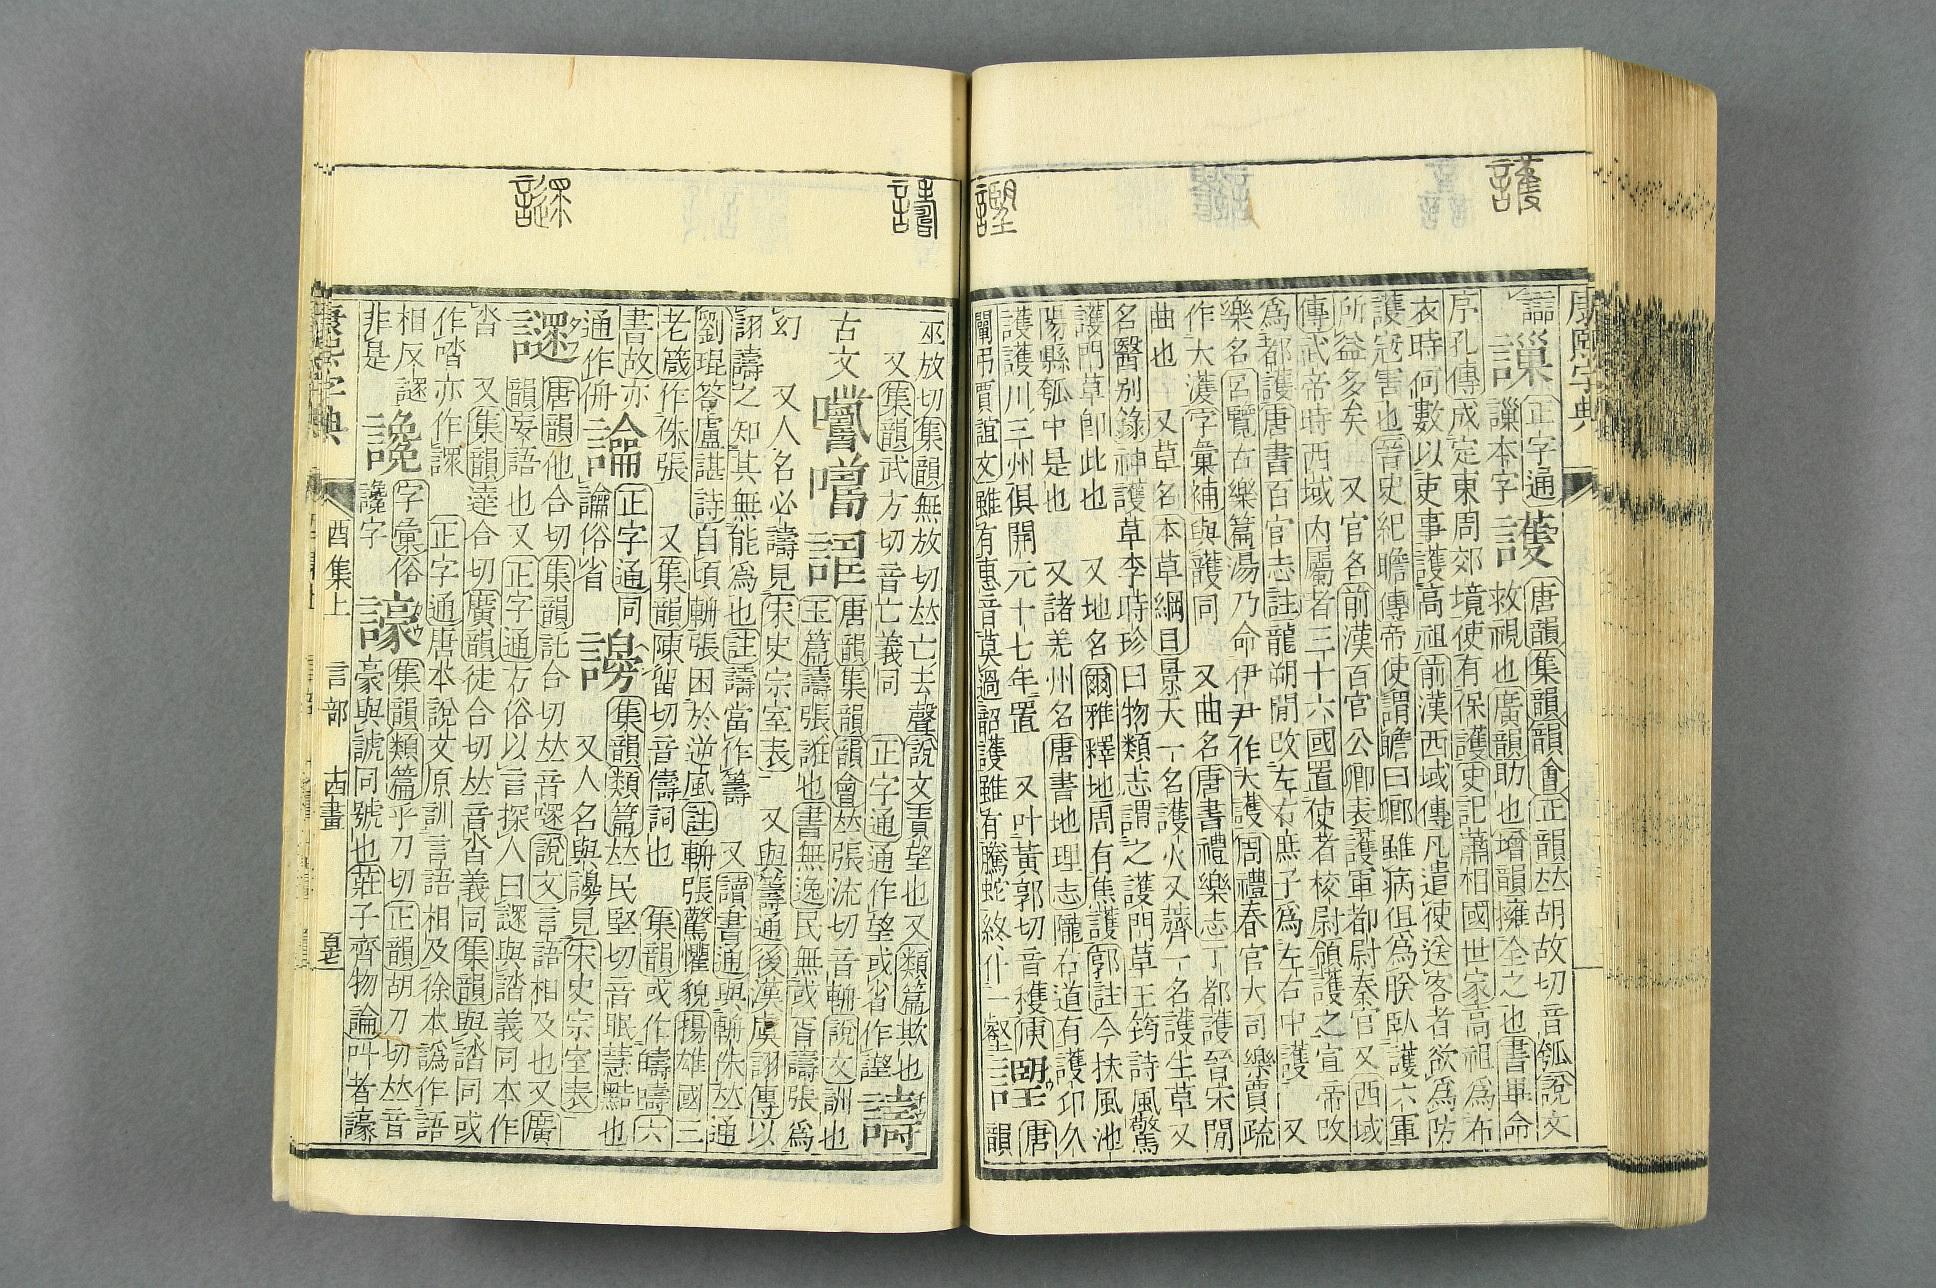 護
謹
譸
譅
康熙字典
正字通 護 唐韻集韻韻會正韻𠀤胡故切音瓠說文
本字 救視也廣韻助也增韻擁全之也書畢命
序孔傳成定東周郊境使有保護史記蕭相國世家高祖爲布
衣時何數以吏事護高祖前漢西域傳凡遣使送客者欲爲防
護寇害也晉史紀瞻傳帝使謂瞻曰卿雖病但爲朕臥護六軍
所益多矣 又官名前漢百官公卿表護軍都尉秦官又西域
傳武帝時西域內屬者三十六國置使者校尉領護之宣帝改
爲都護唐書百官志註龍朔閒改左右庶子爲左右中護 又
樂名呂覽古樂篇湯乃命伊尹作大護周禮春官大司樂賈疏
作大濩字彙補與護同 又曲名唐書禮樂志丁都護晉宋閒
曲也 又草名本草綱目景天一名護火又薺一名護生草又
名醫別錄神護草李時珍曰物類志謂之護門草王筠詩風驚
護門草卽此也 又地名爾雅釋地周有焦護郭註今扶風池
陽縣瓠中是也 又諸羌州名唐書地理志隴右道有護卭久
護護川三州俱開元十七年置 又叶黃郭切音穫庾 唐
闡弔賈誼文雖有惠音莫過韶護雖有騰蛇終仆一壑 韻
巫放切集韻無放切𠀤亡去聲說文責望也又類篇欺也 譸
又集韻武方切音亡義同 正字通通作望或省作𧫢
古文 唐韻集韻韻會𠀤張流切音輈說文訓也
玉篇譸張誑也書無逸民無或胥譸張爲
幻 又人名必譸見宋史宗室表 又與籌通後漢虞詡傳以
詡譸之知其無能爲也註譸當作籌 又讀書通與輈侏𠀤通
劉琨答盧諶詩自頃輈張困於逆風註輈張驚懼貌揚雄國三
老箴作侏張 又集韻陳留切音儔詞也 集韻或作嚋𠷎六
書故亦 論 正字通同 集韻類篇𠀤民堅切音眠慧黠也
通作侜 論俗省 又人名與 見宋史宗室表
謎 唐韻他合切集韻託合切𠀤音遝說文言語相及也又廣
韻妄語也又正字通方俗以言探人曰 與誻義同本作
又集韻達合切廣韻徒合切𠀤音沓義同集韻與誻同或
作嗒亦作 正字通唐本說文原訓言語相及徐本譌作語
相反 讒 字彙俗 譹 集韻類篇乎刀切正韻胡刀切𠀤音
非是 讒字 豪與諕同號也莊子齊物論叫者譹
康熙字典 酉集上 言部 古畫